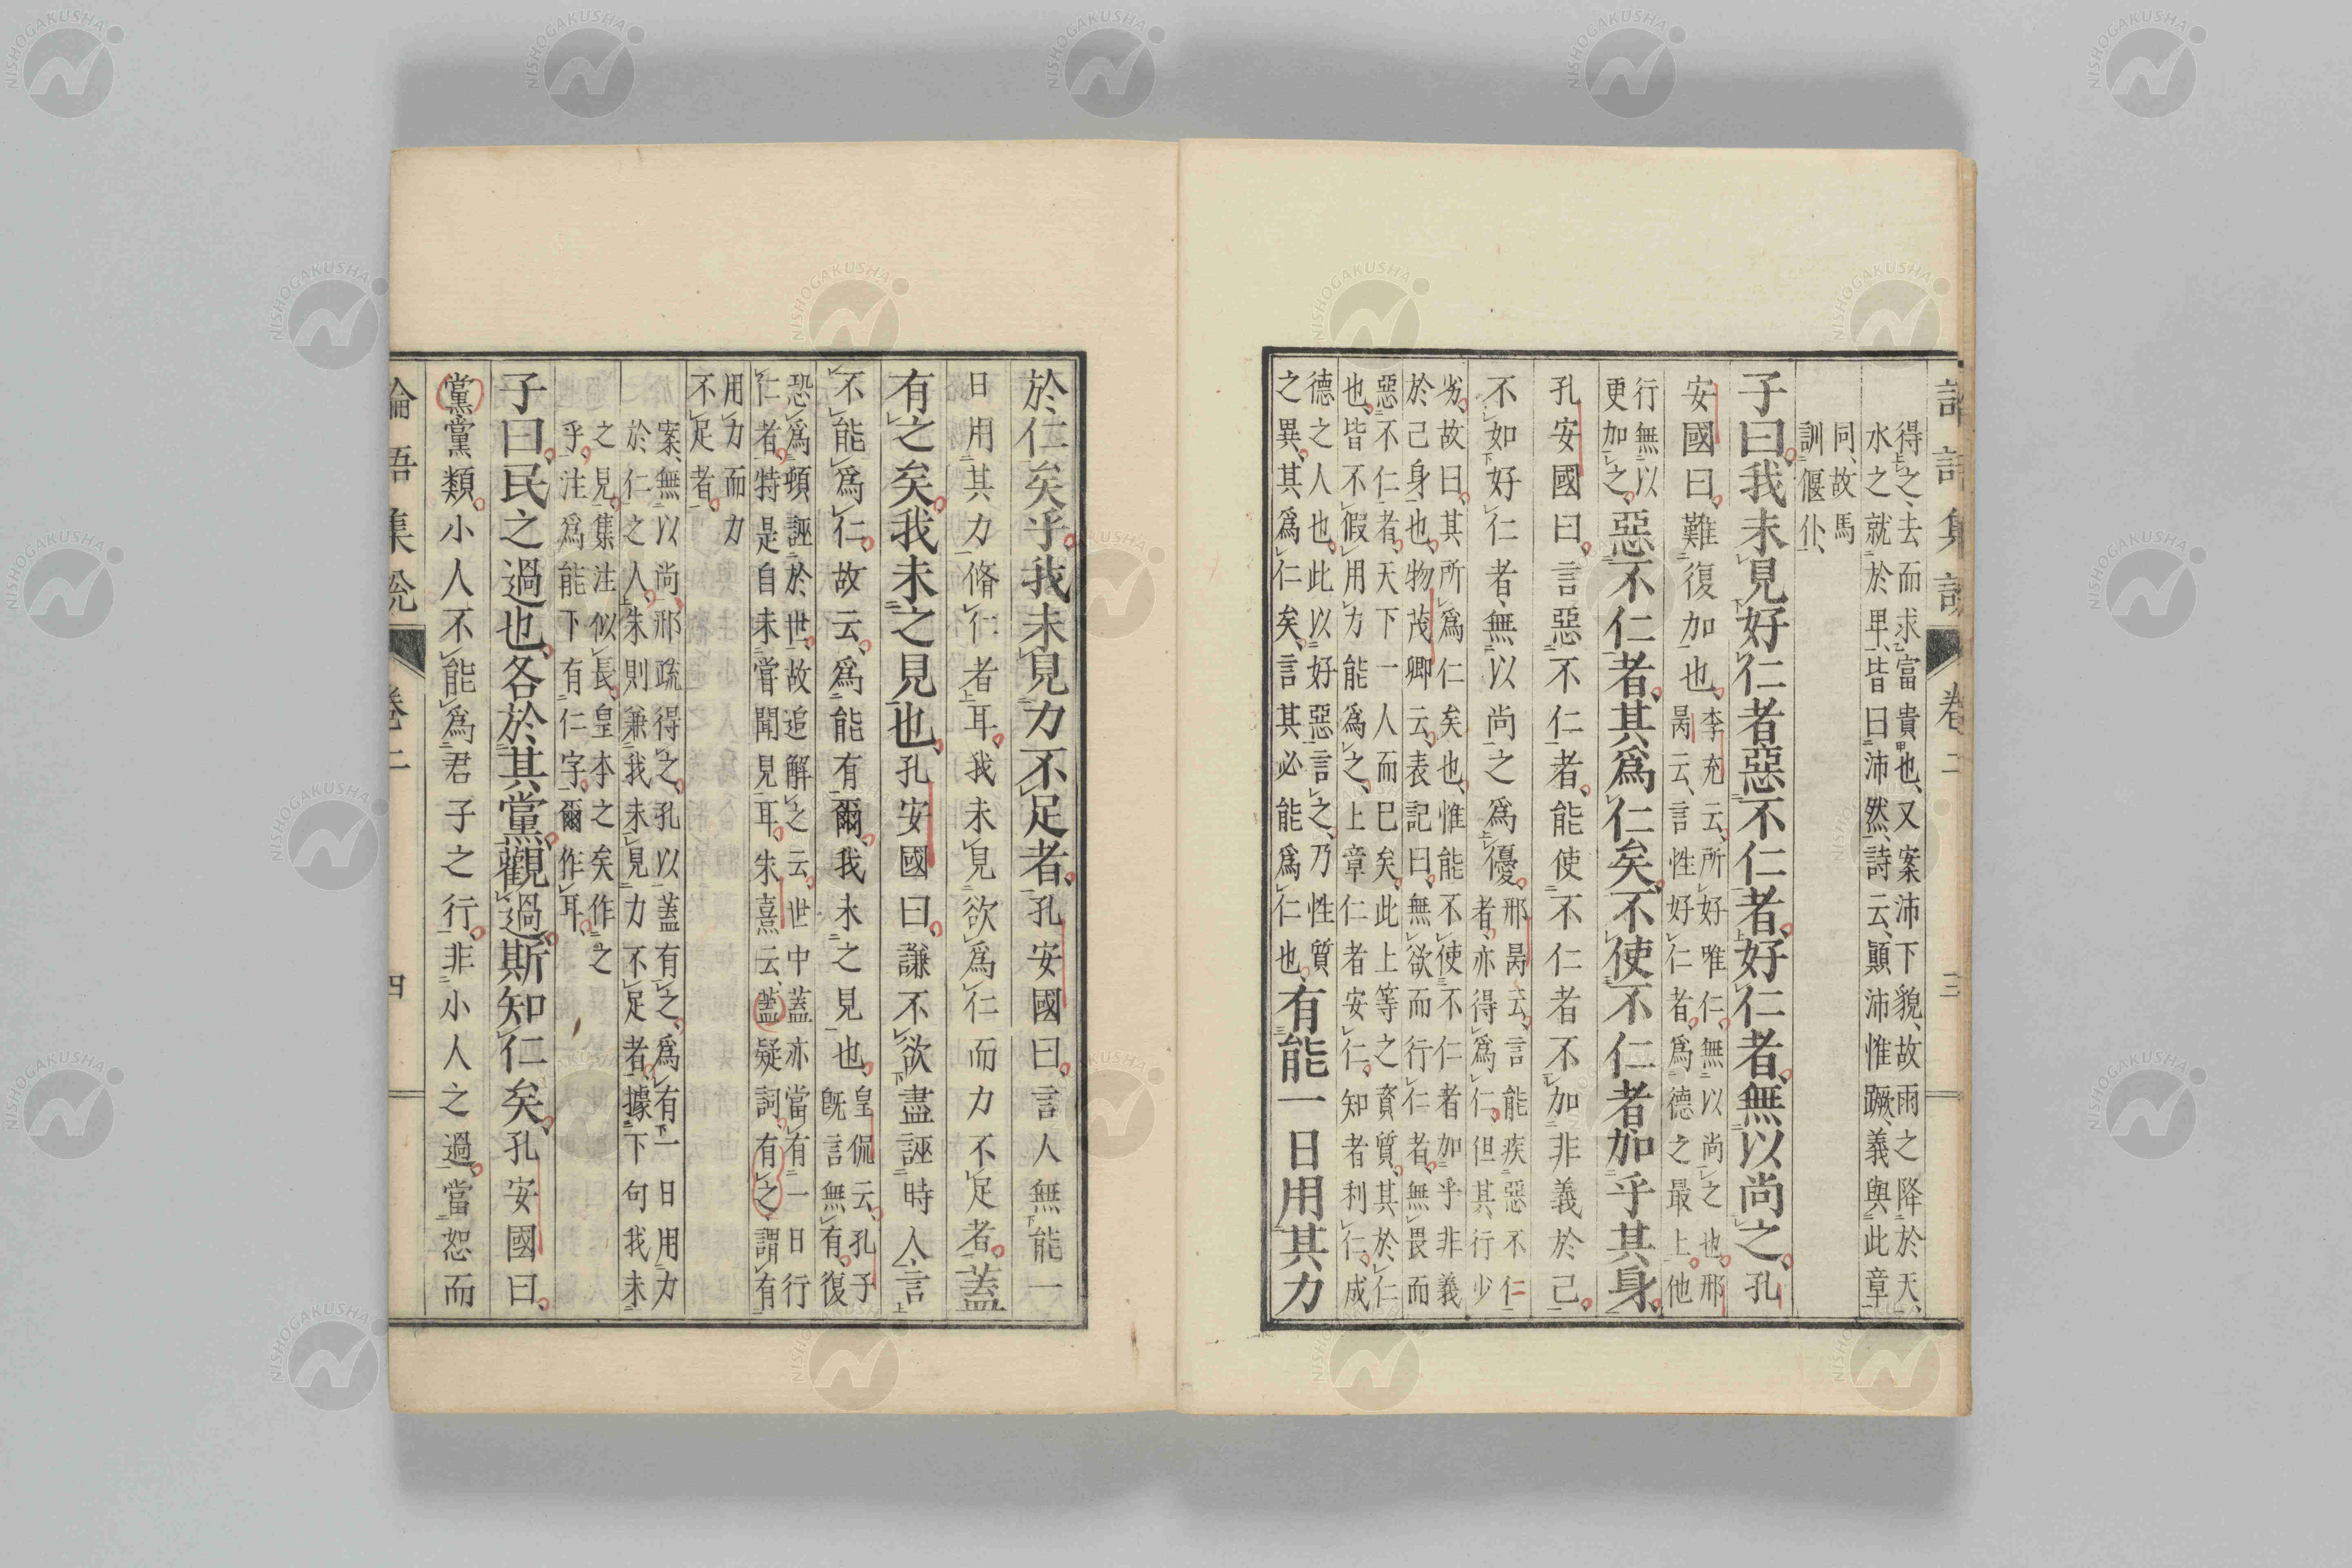 得之、去而求富貴也、又案沛下貌、故雨之降於天、
水之就於卑、皆曰沛然、詩云、顚沛惟蹶、義與此章
同、故馬
訓偃仆、
子曰、我未見好仁者惡不仁者、好仁者、無以尚之、孔
安國曰、難復加也、李充云、所好唯仁、無以尚之也、邢
昺云、言性好仁者、爲德之最上、他
行無以
更加之、惡不仁者、其爲仁矣、不使不仁者加乎其身、
孔安國曰、言惡不仁者、能使不仁者不加非義於己、
不如好仁者、無以尚之爲優、邢昺云、言能疾惡不仁
者、亦得爲仁、但其行少
劣、故曰、其所爲仁矣也、惟能不使不仁者加乎非義
於己身也、物茂卿云、表記曰、無欲而行仁者、無畏而
惡不仁者、天下一人而已矣、此上等之資質、其於仁
也、皆不假用力能爲之、上章仁者安仁、知者利仁、成
德之人也、此以好惡言之、乃性質
之異、其爲仁矣、言其必能爲仁也、有能一日用其力
於仁矣乎、我未見力不足者、孔安國曰、言人無能一
日用其力脩仁者耳、我未見欲爲仁而力不足者、蓋
有之矣、我未之見也、孔安國曰、謙不欲盡誣時人、言
不能爲仁、故云、爲能有爾、我未之見也、皇侃云、孔子
旣言無有、復
恐爲頓誣於世、故追解之云、世中蓋亦當有一日行
仁者、特是自未嘗聞見耳、朱熹云、蓋疑詞、有之、謂有
用力而力
不足者、
案無以尚、邢疏得之、孔以蓋有之、爲有一日用力
於仁之人、朱則兼我未見力不足者、據下句我未
之見、集注似長、皇本之矣作之
乎、注爲能下有仁字、爾作耳、
子曰、民之過也、各於其黨、觀過斯知仁矣、孔安國曰、
黨黨類、小人不能爲君子之行、非小人之過、當恕而
論語集說 卷二 四